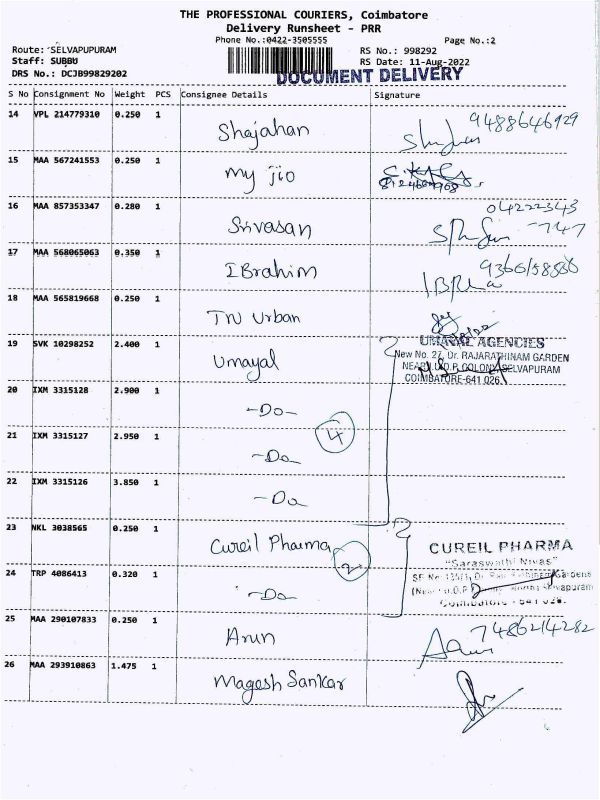 THE PROFESSIONAL COURIERS, Coimbatore
Delivery Runsheet - PRR
Phone No.:0422-3505555 Page No.:2
Route: SELVAPUPURAM RS No.: 998292
Staff: SUBBU RS Date: 11-Aug-2022
DRS No.: DCJB99829202 DOCUMENT DELIVERY
S No Consignment No Weight PCS Consignee Details Signature
14 VPL 214779310 0.250 1 Shajahan 9488646929
15 MAA 567241553 0.250 1 my jio
16 MAA 857353347 0.280 1 Srivasan 04222343
-747
17 MAA 568065063 0.350 1 IBrahim
18 MAA 565819668 0.250 1 TN Urban
19 SVK 10298252 2.400 1 Umayal UMAYAL AGENCIES
New No. 27, Dr. RAJARATHINAM GARDEN
NEAR U.D.P. COLONY, SELVAPURAM
COIMBATORE-641 026.
20 IXM 3315128 2.900 1 -Do-
4
21 IXM 3315127 2.950 1 -Do-
22 IXM 3315126 3.850 1 -Do-
23 NKL 3038565 0.250 1 Cureil Pharma CUREIL PHARMA
2 "Saraswathi Nivas"
24 TRP 4086413 0.320 1 -Do-
Selvapuram
Coimbatore - 641 026.
25 MAA 290107833 0.250 1 Arun 7486214282
26 MAA 293910863 1.475 1 Magesh Sankar